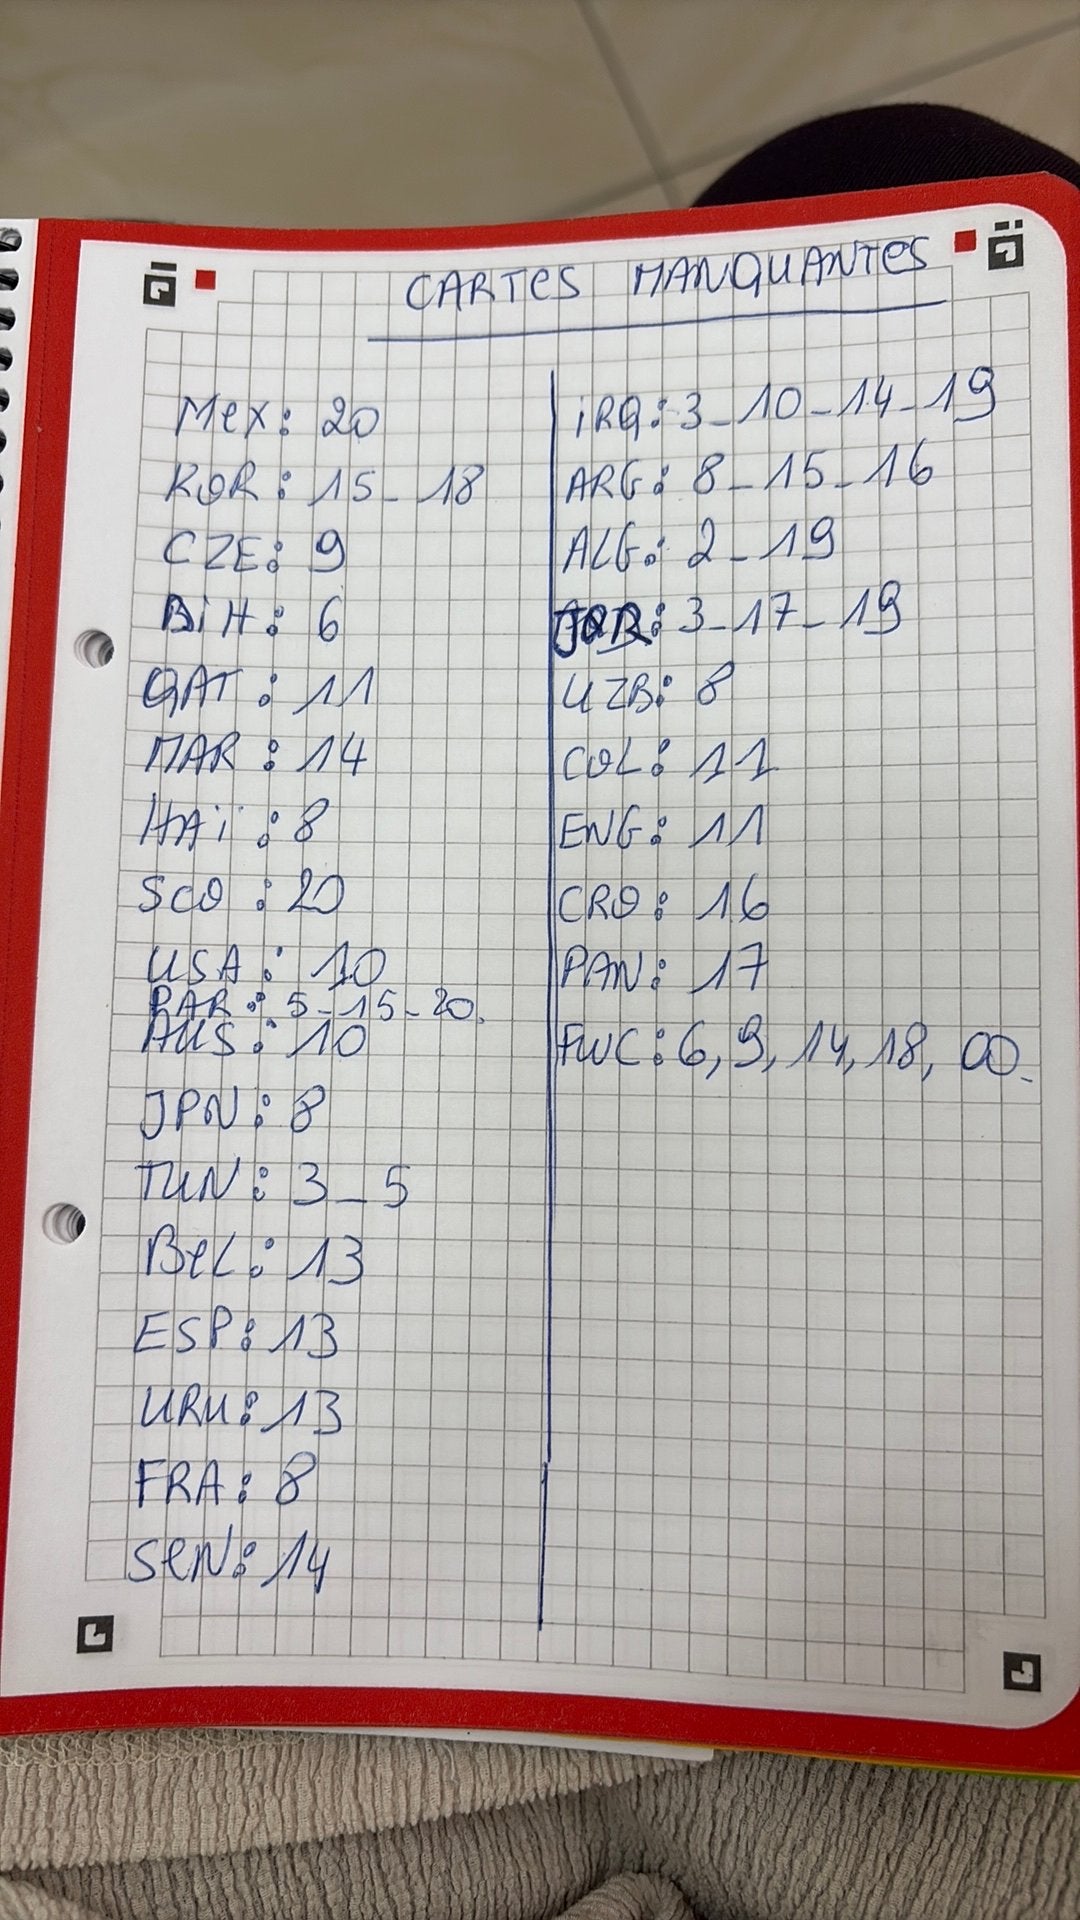 CARTES MANQUANTES
Mex: 20
KOR: 15_18
CZE: 9
BiH: 6
QAT: 11
MAR: 14
HAi: 8
SCO: 20
USA: 10
PAR: 5_15_20.
AUS: 10
JPN: 8
TUN: 3_5
BeL: 13
ESP: 13
URU: 13
FRA: 8
SeN: 14
iRQ: 3_10_14_19
ARG: 8_15_16
ALG: 2_19
JOR: 3_17_19
UZB: 8
COL: 11
ENG: 11
CRO: 16
PAN: 17
FWC: 6, 9, 14, 18, 00.